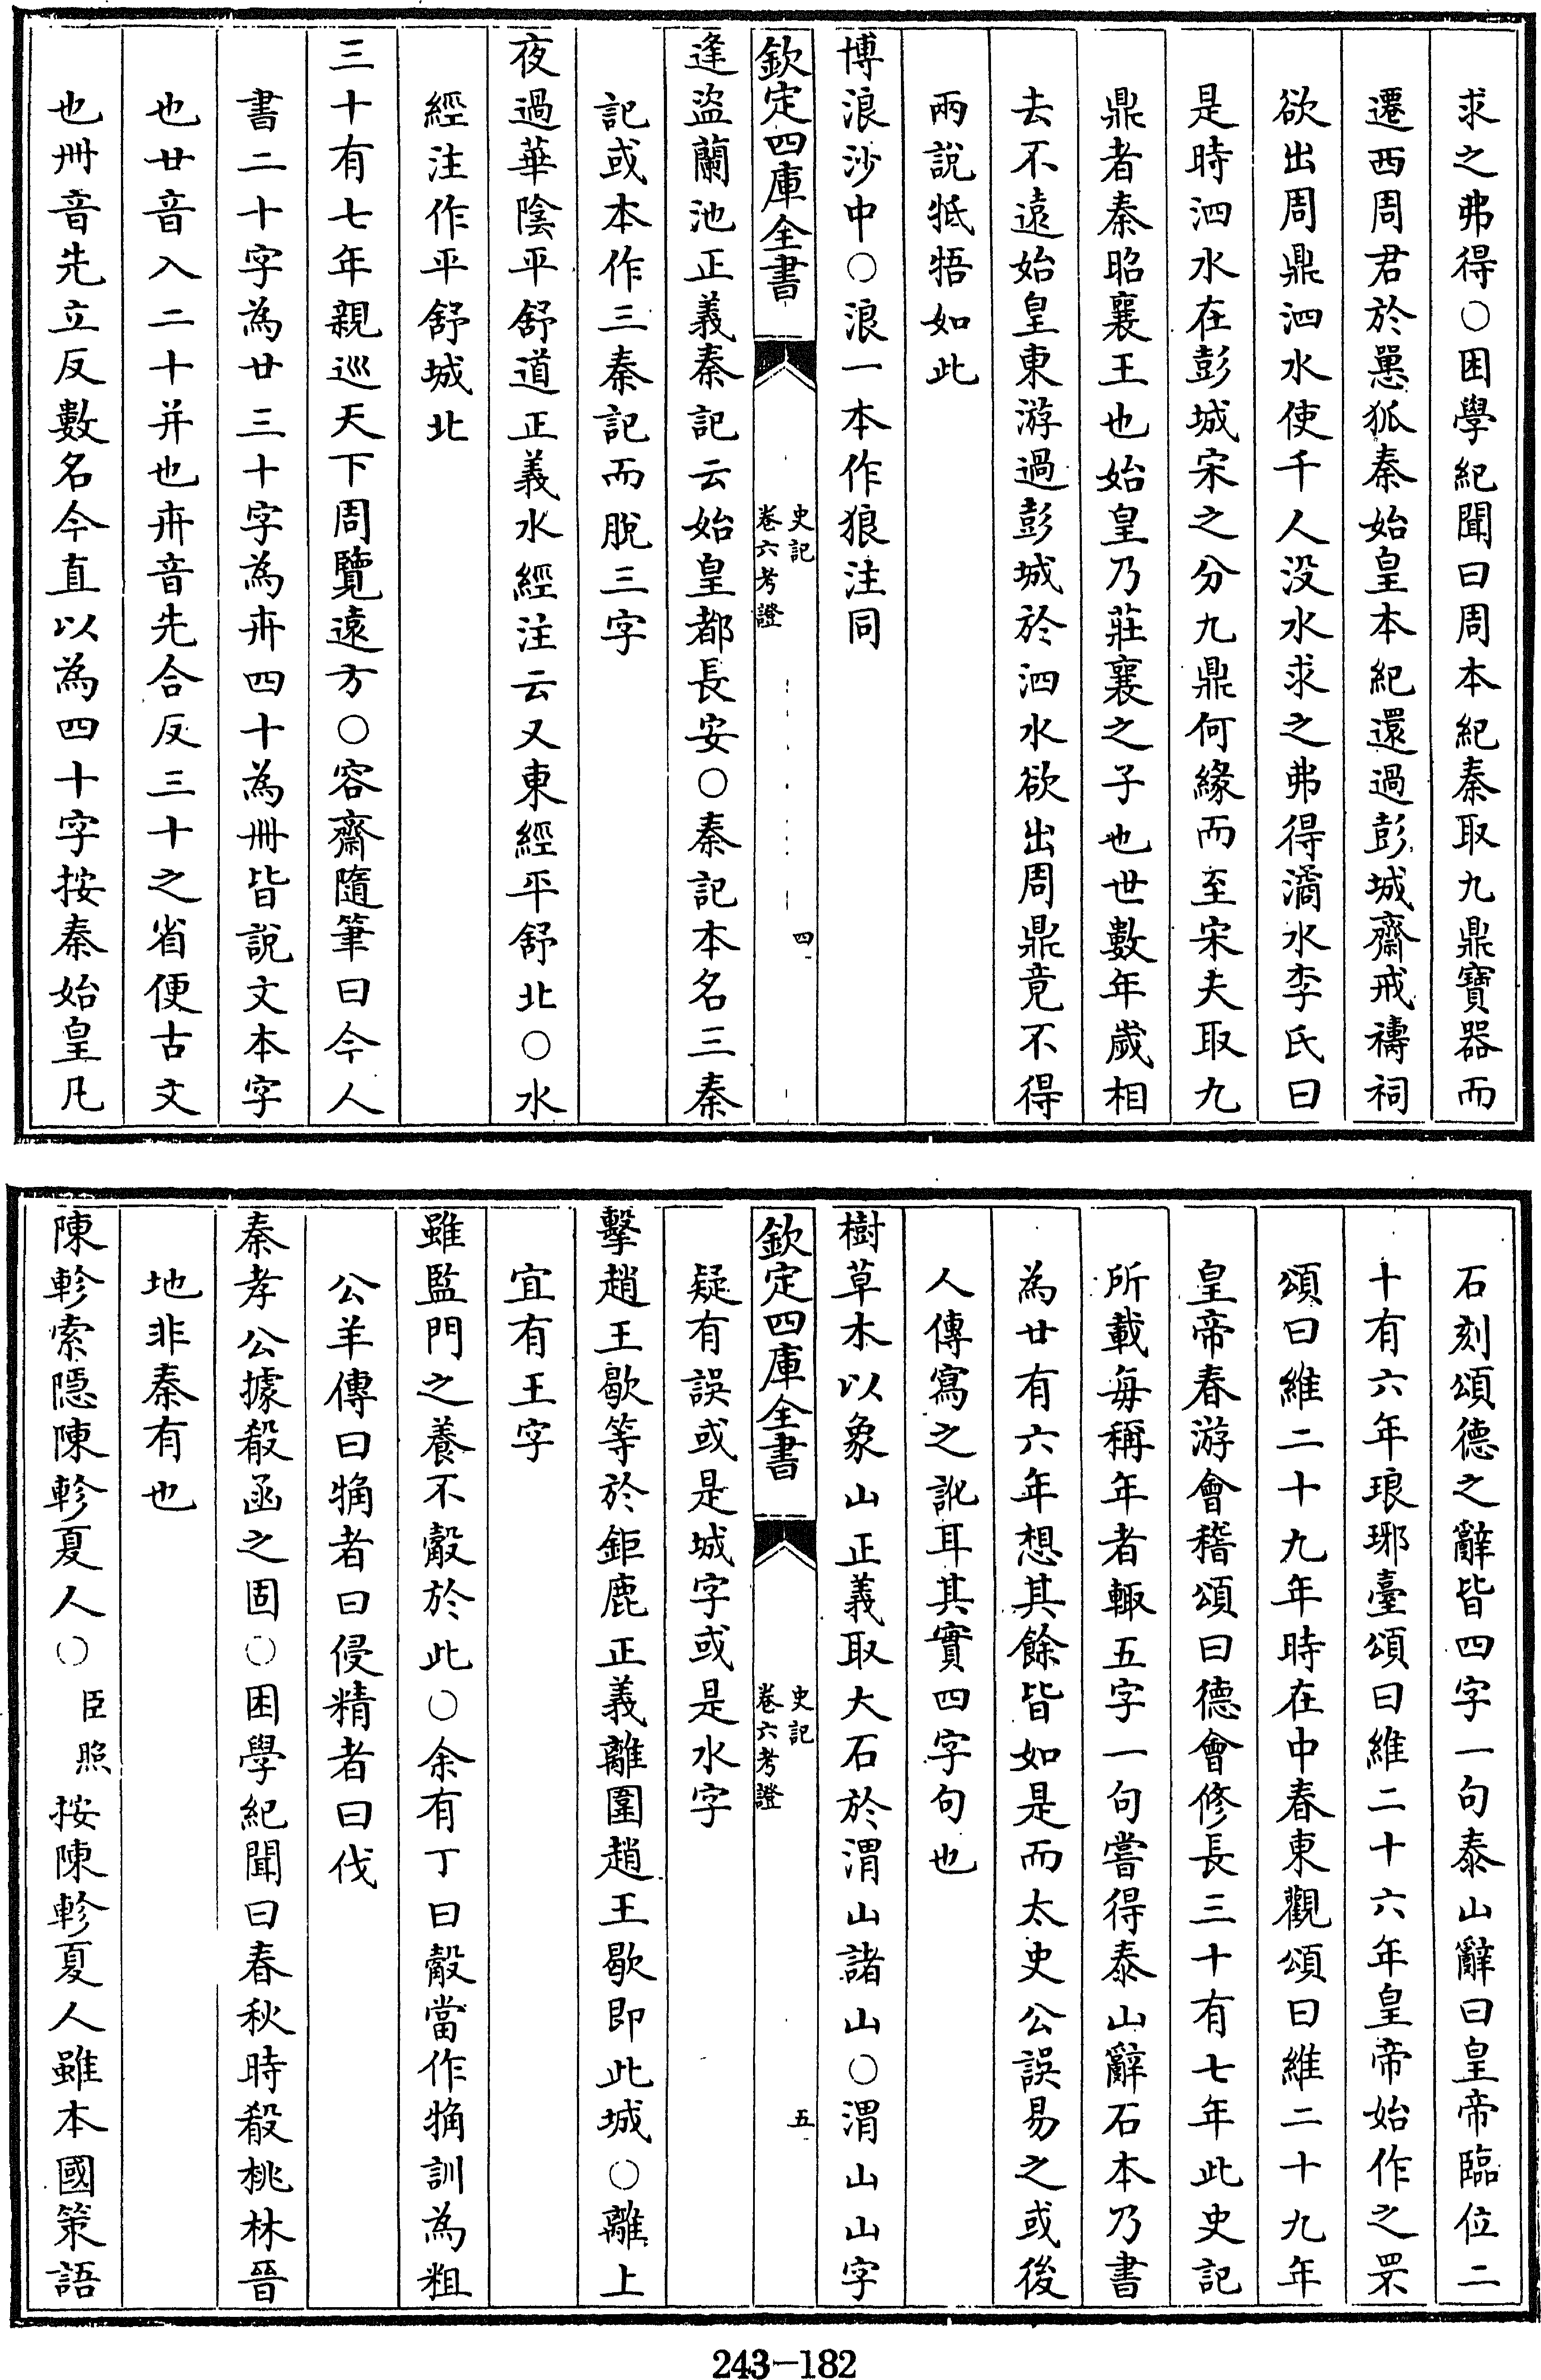 求之弗得○困學紀聞曰周本紀秦取九鼎寶器而
遷西周君於𢠸狐秦始皇本紀還過彭城齋戒禱祠
欲出周鼎泗水使千人没水求之弗得潏水李氏曰
是時泗水在彭城宋之分九鼎何緣而至宋夫取九
鼎者秦昭襄王也始皇乃莊襄之子也世數年歲相
去不遠始皇東游過彭城於泗水欲出周鼎竟不得
兩說牴牾如此
博浪沙中○浪一本作狼注同
欽定四庫全書
史記
卷六考證
四
逢盜蘭池正義秦記云始皇都長安○秦記本名三秦
記或本作三秦記而脫三字
夜過華陰平舒道正義水經注云又東經平舒北○水
經注作平舒城北
三十有七年親巡天下周覽遠方○容齋隨筆曰今人
書二十字為廿三十字為卅四十為卌皆說文本字
也廿音入二十并也卅音先合反三十之省便古文
也卌音先立反數名今直以為四十字按秦始皇凡
石刻頌德之辭皆四字一句泰山辭曰皇帝臨位二
十有六年琅琊臺頌曰維二十六年皇帝始作之罘
頌曰維二十九年時在中春東觀頌曰維二十九年
皇帝春游會稽頌曰德會修長三十有七年此史記
所載每稱年者輒五字一句嘗得泰山辭石本乃書
為廿有六年想其餘皆如是而太史公誤易之或後
人傳寫之訛耳其實四字句也
樹草木以象山正義取大石於渭山諸山○渭山山字
欽定四庫全書
史記
卷六考證
五
疑有誤或是城字或是水字
擊趙王歇等於鉅鹿正義離圍趙王歇即此城○離上
宜有王字
雖監門之養不觳於此○余有丁曰觳當作觕訓為粗
公羊傳曰觕者曰侵精者曰伐
秦孝公據殽函之固○困學紀聞曰春秋時殽桃林晉
地非秦有也
陳軫索隱陳軫夏人○臣照按陳軫夏人雖本國策語
243-182